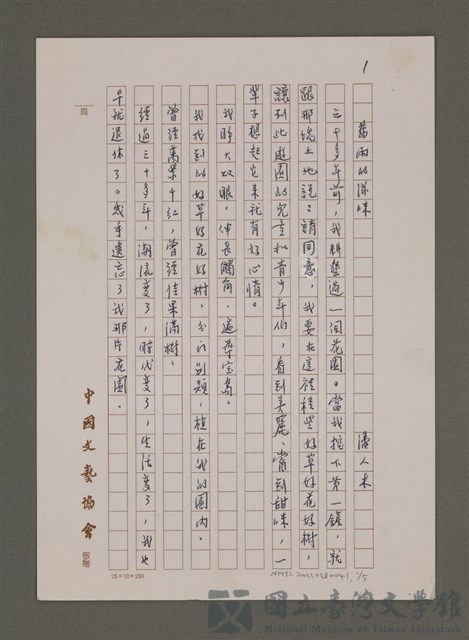 1
舊雨的滋味
潘人木
三十多年前，我耕墾過一個花園。當我挖下第一鏟，就
跟那塊土地說：請同意，我要在這裡種些好草好花好樹，
讓到此遊園的兒童和青少年們，看到美麗、嘗到甜味，一
輩子想起它來就有好心情。
我睜大双眼，伸長觸角，遍尋宝島。
我找到的好草好花好樹，分門別類，植在我的園內。
曾經萬紫千紅，曾經佳果滿樹。
經過三十多年，潮流變了，時代變了，生活變了，我也
早就退休了。幾乎遺忘了我那片花園。
頁
中國文藝協會
25×10=250
NMTL 1/5
國立臺灣文學館
National Museum of Taiwan Literature